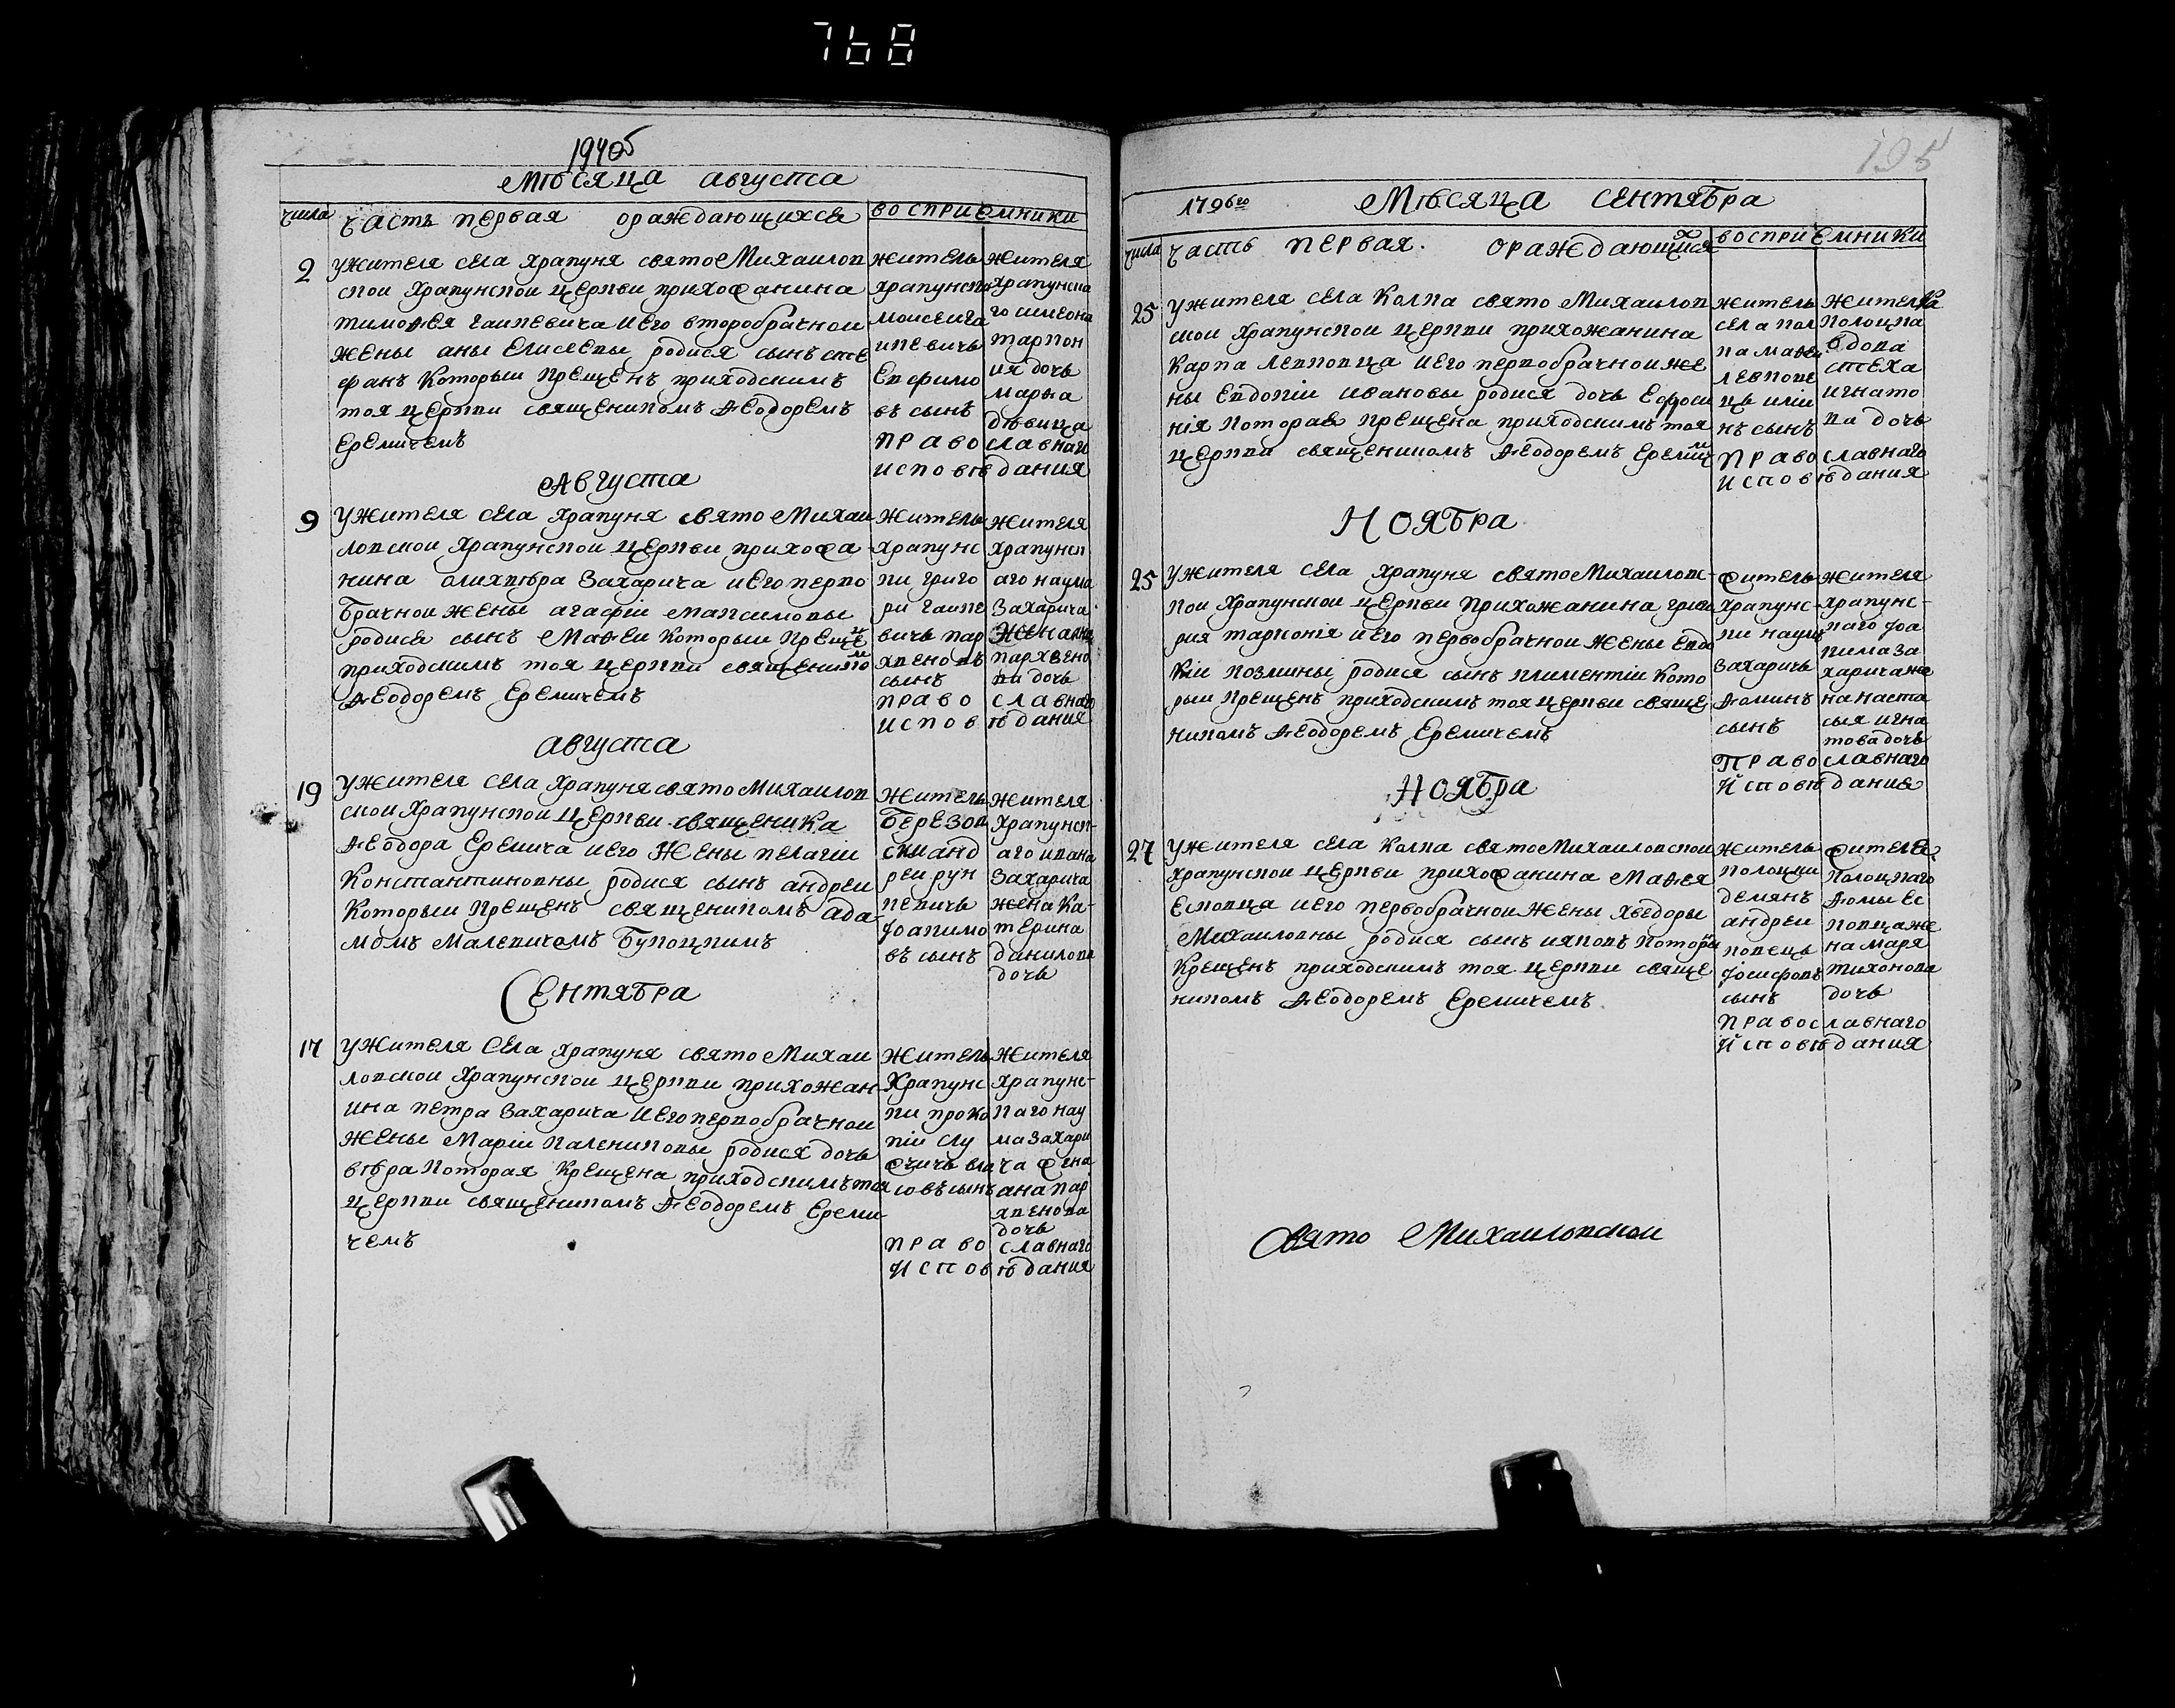 768
Мѣсяца августа
числа
часть первая ораждающихся
восприемники
2
Ужителя села храпуня свято Михаилов
ской храпунской церкви прихожанина
тимоѳея гаикевича иего второбрачной
жены аны Елисеевы родися сынъ сте
фанъ который крещенъ приходскимъ
тоя церкви священикомъ Ѳеодоремъ
Еремичемъ
житель
храпунски
моисей га
икевичъ
Евфимо
въ сынъ
жителя
храпунска
го симеона
тарпон
ия дочь
марѳа
дѣвица
православнаго
исповѣдания
Августа
9
Ужителя села храпуня свято Михаи
ловской храпунской церкви прихожа
нина Захарича иегоперво
брачной жены агафіи максимовы
родися сынъ Маѳей который креще
приходскимъ тоя церкви священико
Ѳеодоремъ Еремичемъ
житель
храпунс
ки григо
рй гаике
вичь пар
хвеновъ
сынъ
жителя
храпунск
аго наума
Захарича
жена анна
пархвено
ва дочь
право славнаго
исповѣдания
августа
19
Ужителя села храпуня свято Михаилов
ской храпунской церкви священика
Ѳеодора Еремича иего жены пелагии
Константиновны родися сынъ андреи
который крещенъ священикомъ ада
момъ Малевичемъ Буноцкимъ
житель
Березов
ски анд
рей рун
кевичь
Іоакимо
въ сынъ
жителя
храпунск
аго ивана
Захарича
жена ка
терина
данилова
дочь
Сентября
17
Ужителя Села храпуня свято Михаи
ловской храпунской церкви прихожан
ина петра Захарича иегопервобрачной
жены Маріи Калениковы родися дочь
вѣра которая крещена приходскимъ тоя
церкви священикомъ Ѳеодоремъ Ереми
чемъ
житель
храпунс
ки проко
піи слу
жичь вла
совъ сынъ
жителя
храпунс
каго нау
ма Захари
ча жена
ана пар
хвенова
дочь
право славнаго
исповѣдания
1796го Мѣсяца сентября
числа
часть первая. ораждающихся
восприемники
25
Ужителя села Колпа свято Михаилов
ской храпунской церкви прихожанина
Карпа Левковца иего первобрачной же
ны Евдокіи ивановы родися дочь Ефроси
нія которая крещена приходскимъ тоя
церкви священикомъ Ѳеодоремъ Еремич
житель
села кол
па маѳеи
левкове
ць иліи
нъ сынъ
жителка
полоцка
вдова
стеха
игнато
ва дочь
право славнаго
исповѣдания
Ноября
25
Ужителя села храпуня свято Михаиловс
кой храпунской церкви прихожанина григо
рия тарпонія иего первобрачной жены Евдо
кіи козминьі родися сынъ климентіи кото
рый крещенъ приходскимъ тоя церкви свяще
никомъ Ѳеодоремъ Еремичемъ
житель
храпунс
ки наумъ
захаричь
Ѳоминъ
сынъ
жителя
храпунс
каго Іоа
кима за
харича же
на наста
сыя игна
това дочь
Право славнаго
исповѣдания
Ноября
27
Ужителя села Колпа свято Михаиловской
храпунской церкви прихожанина Маѳея
Есковца иего первобрачной жены хведоры
Михаиловны родися сынъ ияковъ которы
Крещенъ приходскимъ тоя церкви свяще
никомъ Ѳеодоремъ Еремичемъ
житель
полоцки
демянъ
андреи
ковець
Іосифовъ
сынъ
жителя
полоцкаго
Ѳомы Ес
ковца же
на маря
тихонова
дочь
православнаго
исповѣдания
Свято Михаиловской